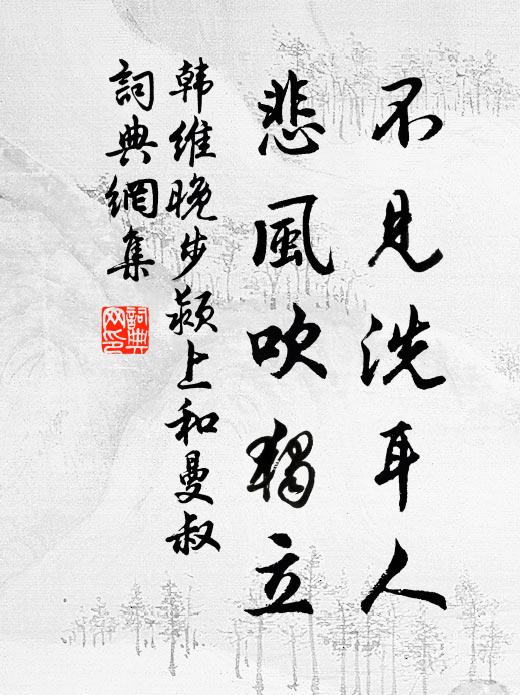 不見洗耳人
悲風吹獨立
韩維晚步颍上和曼叔
詞典網集
詞典网印